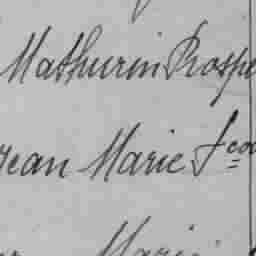 Mathurin Prospe
Jean Marie Fcois
Mari